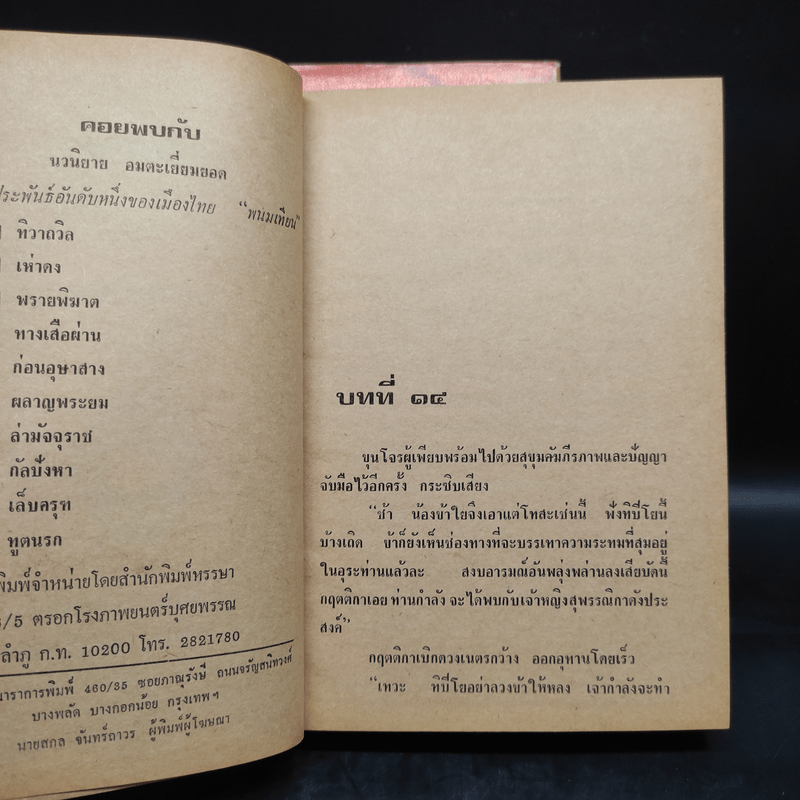 คอยพบกับ
นวนิยาย อมตะเยี่ยมยอด
ประพันธ์อันดับหนึ่งของเมืองไทย "พนมเทียน"
ทิวาถวิล
เห่าดง
พรายพิฆาต
ทางเสือผ่าน
ก่อนอุษาสาง
ผลาญพระยม
ล่ามัจจุราช
กัลปังหา
เล็บครุฑ
ทูตนรก
พิมพ์จำหน่ายโดยสำนักพิมพ์หรรษา
/5 ตรอกโรงภาพยนตร์บุศยพรรณ
ลำภู ก.ท. 10200 โทร. 2821780
นาราการพิมพ์ 460/35 ซอยภาณุรังษี ถนนจรัญสนิทวงศ์
บางพลัด บางกอกน้อย กรุงเทพฯ
นายสกล จันทร์ถาวร ผู้พิมพ์ผู้โฆษณา
บทที่ ๑๔
ขุนโจรผู้เพียบพร้อมไปด้วยสุขุมคัมภีรภาพและปัญญา
จับมือไว้อีกครั้ง กระซิบเสียง
"ช้า น้องข้าใยจึงเอาแต่โทสะเช่นนี้ ฟังทิบี่โยนี้
บ้างเถิด ข้าก็ยังเห็นช่องทางที่จะบรรเทาความระทมที่สุมอยู่
ในอุระท่านแล้วละ สงบอารมณ์อันพลุ่งพล่านลงเสียบัดนี้
กฤตติกาเอย ท่านกำลัง จะได้พบกับเจ้าหญิงสุพรรณิกาดังประ
สงค์"
กฤตติกาเบิกดวงเนตรกว้าง ออกอุทานโดยเร็ว
"เทวะ ทิบี่โยอย่าลวงข้าให้หลง เจ้ากำลังจะทำ